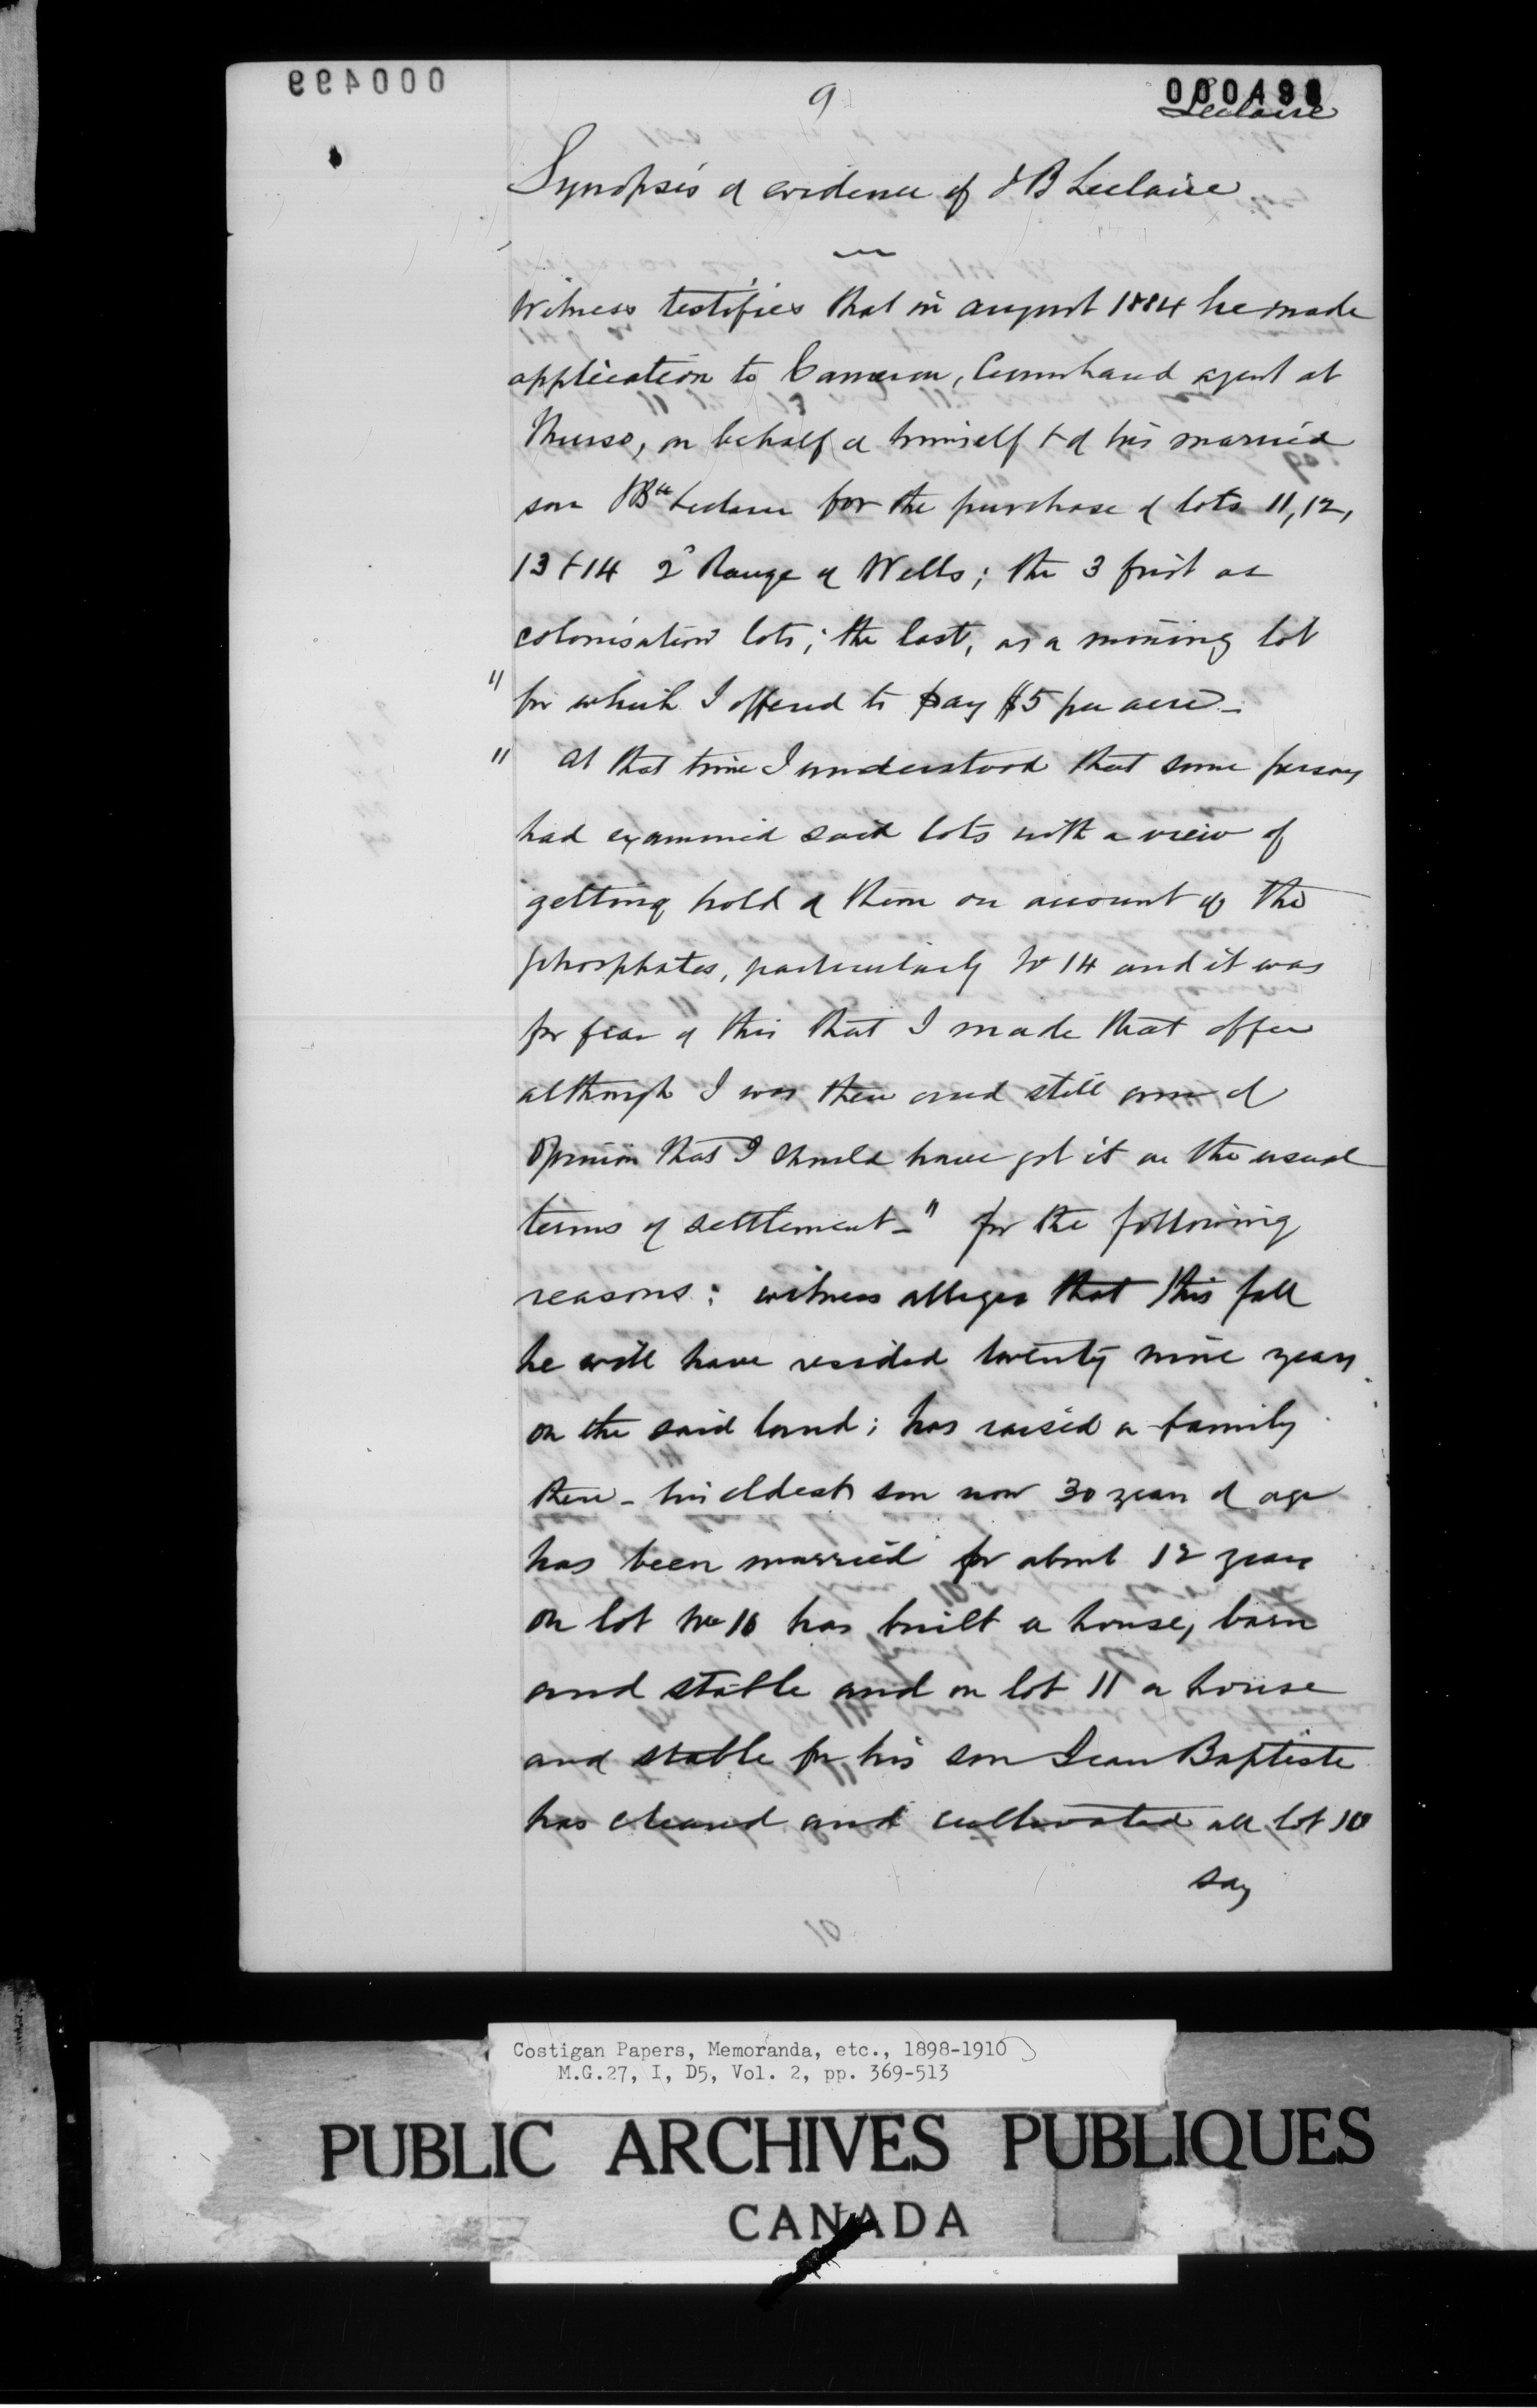 000499
9
000498
Leclaire
Synopsis of evidence of J B Leclaire
Witness testifies that in august 1884 he made
application to Cameron, Crown land agent at
Thurso, on behalf of himself & of his married
son JBte Leclaire for the purchase of lots 11, 12,
13 & 14 2d Range of Wells; the 3 first as
colonisation lots; the last, as a mining lot
" for which I offered to pay $5 per acre -
" at that time I understood that some persons
had examined said lots with a view of
getting hold of them on account of the
phosphates, particularly No 14 and it was
for fear of this that I made that offer
although I was then and still am of
opinion that I should have got it on the usual
terms of settlement - " for the following
reasons: witness alleges that this fall
he will have resided twenty nine years
on the said land; has raised a family
there - his eldest son now 30 years of age
has been married for about 12 years
on lot No 10 has built a house, barn
and stable and on lot 11 a house
and stable for his son Jean Baptiste
has cleared and cultivated all lot 10
say
10
Costigan Papers, Memoranda, etc., 1898-1910
M.G.27, I, D5, Vol. 2, pp. 369-513
PUBLIC ARCHIVES PUBLIQUES
CANADA